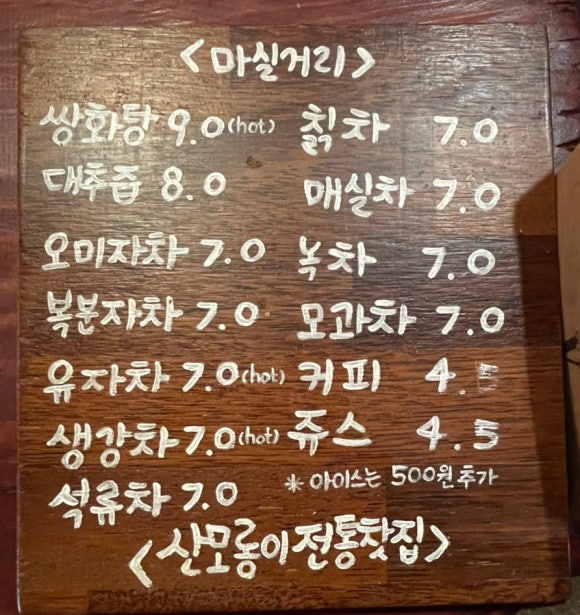 <마실거리>
쌍화탕 9.0(hot) 칡차 7.0
대추즙 8.0 매실차 7.0
오미자차 7.0 녹차 7.0
복분자차 7.0 모과차 7.0
유자차 7.0(hot) 커피 4.5
생강차 7.0(hot) 쥬스 4.5
석류차 7.0 * 아이스는 500원 추가
<산모롱이전통찻집>